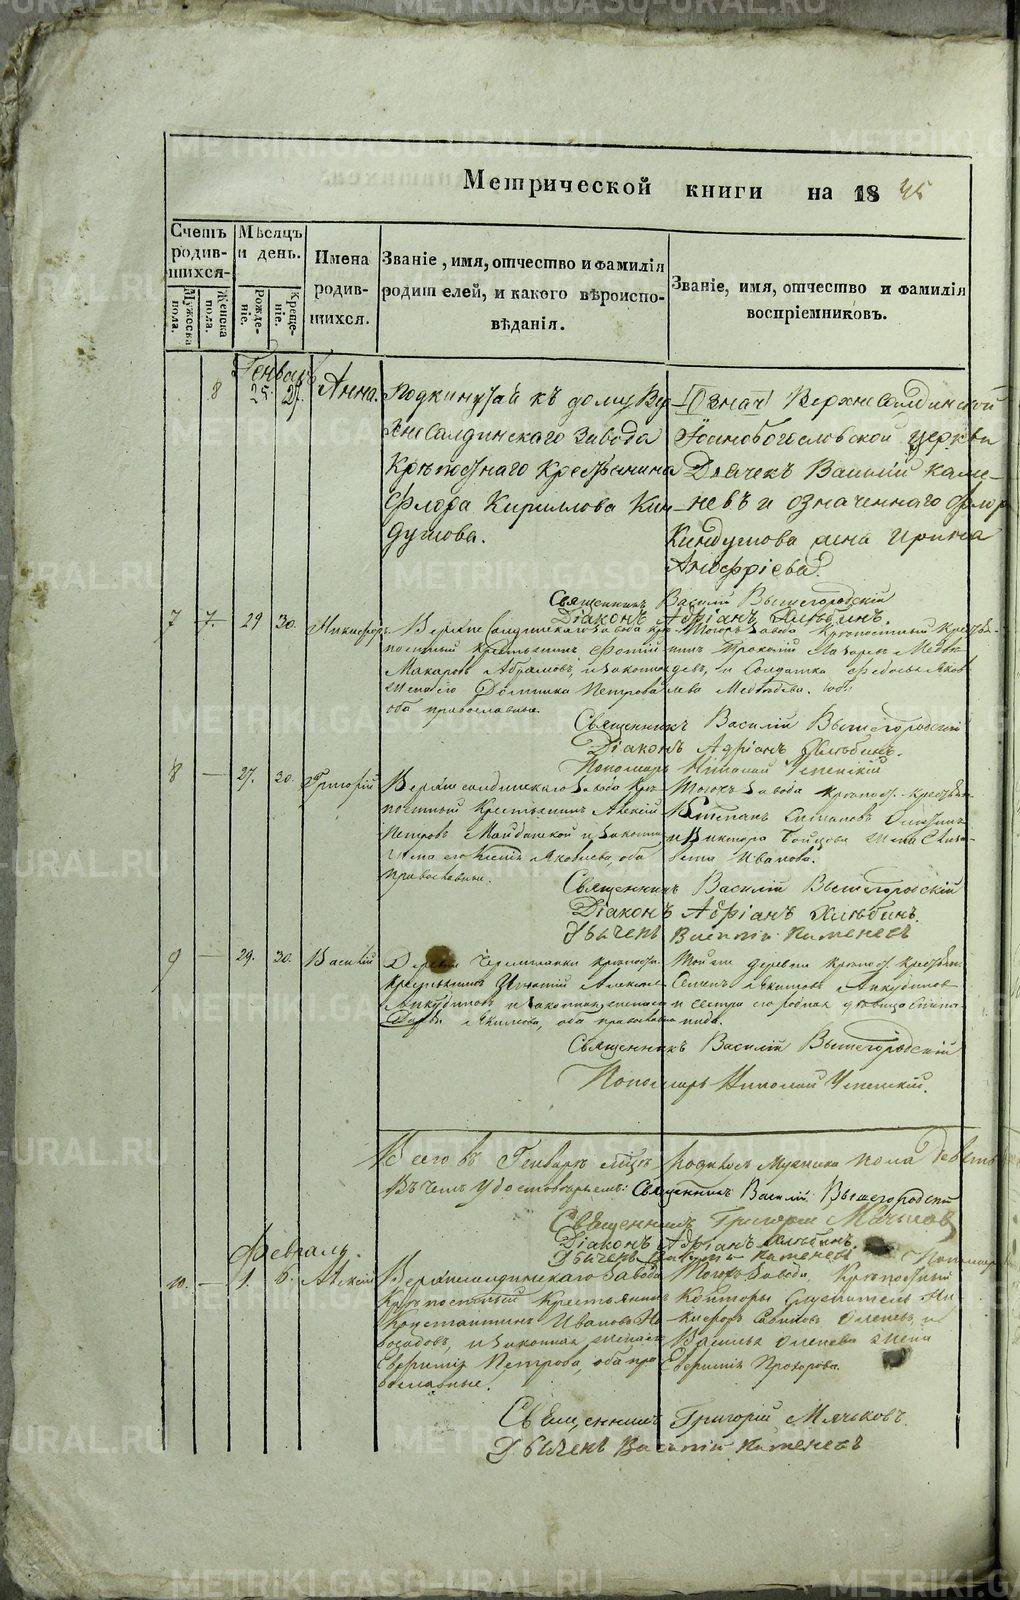 Метрической книги на 1845
Счетъ родив-шихся.
Мужеска пола.
Женска пола.
Мѣсяцъ и день.
Рожде-ніе.
Креще-ніе.
Имена родив-шихся.
Званіе, имя, отчество и фамилія
родителей, и какого вѣроиспо-
вѣданія.
Званіе, имя, отчество и фамилія
воспріемниковъ.
Генварь
8 25. 27. Анна.
Подкинутай къ дому Вер
хнесалдинскаго завода
Крѣпостнаго крестьянина
Флора Кириллова Кин
дутова.
Верхнесалдинской
Іоанобогословской церкви
Дьячекъ Василій Каме-
невъ и означеннаго Флор
Киндутова жена Ирина
Священникъ Василій Вышегородскій
Діаконъ Адріанъ Хлыбинъ.
7 7. 29 30. Никифоръ.
Верхнесалдинскаго завода крѣ
постный крестьянинъ Фотій
Макаровъ Абрамовъ, и законная
жена его Домника Петрова
оба православные.
Тогожъ завода крѣпостный крестья-
нинъ Прокопій Лазаревъ Медвѣ
девъ, и Солдатка Федосья Яков
лева Медвѣдева.
Священникъ Василій Вышегородскій
Діаконъ Адріанъ Хлыбинъ.
Пономарь Николай Успенскій
8 — 27. 30. Григорій
Верхнесалдинскаго завода крѣ
постный крестьянинъ Алексій
Петровъ и законная
жена его Яковлева, оба
православные.
Тогожъ завода крѣпост. крестьян.
Степанъ Степановъ
и Виктора Бойцова жена Елиза-
вета Иванова.
Священникъ Василій Вышегородскій
Діаконъ Адріанъ Хлыбинъ.
Дьячекъ Василій Каменевъ
9 — 29. 30. Василій
Деревни крѣпост.
крестьянинъ Игнатій Алексѣев
Анкудиновъ и законная жена его
Дарья Якимова, оба православные
Тойже деревни крѣпост. крестьян.
Семенъ Анкудиновъ
и сестра его родная дѣвица Степа-
нида.
Священникъ Василій Вышегородскій
Пономарь Николай Успенскій.
Всего въ Генварѣ мцѣ родилось мужеска пола девять
Въ чемъ удостовѣряемъ: Священникъ Василій Вышегородскій
Священникъ Григорій Мячковъ
Діаконъ Адріанъ Хлыбинъ
Дьячекъ Василій Каменевъ Пономарь
Февраль.
10. — 1. 6. Алексій
Верхнесалдинскаго завода
Крѣпостный крестьянинъ
Константинъ Ивановъ Но
восадовъ, и законная жена его
Евгенія Петрова, оба пра
вославные.
Тогожъ завода, крѣпостный
Конторы служитель Ни
кифоръ Саввиновъ Оленевъ, и
Василья Оленева жена
Евгенія Прохорова.
Священникъ Григорій Мячковъ.
Дьячекъ Василій Каменевъ
METRIKI.GASO-URAL.RU